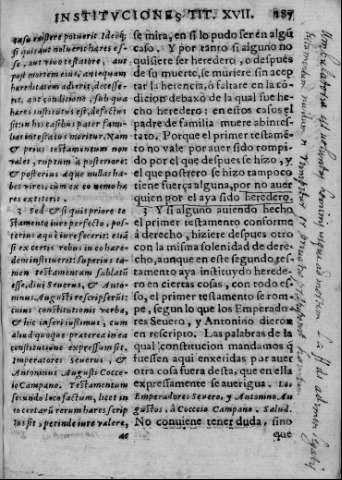 INSTITVCIONES TIT. XVII. 287
casu existere potuerit. Ideóq;
si quis aut noluerit hæres esse,
aut vivo testatore, aut
post mortem eius, antequam
hæreditatem adiret, decesserit,
aut conditione, sub qua
hæres institutus est, defectus
sit: in his casibus pater familias
intestatus moritur. Nam
& prius testamentum non
valet, ruptum à posteriore:
& posterius æque nullas habet
vires, cum ex eo nemo hæres
extiterit.
3 Sed & si quis priore testamento
iure perfecto, posterius
æquè iure fecerit: etiã
si ex certis rebus in eo hæredem
instituerit: Superius tamen
testamentum sublatũ
esse, diui Seuerus, & Antoninus.
Augusti rescripserũt:
cuius constitutionis verba,
& hic inseri iussimus, cum
aliud quoque præterea in ea
constitutione expressum sit.
Imperatores Seuerus, &
Antoninus Augusti Cocceio
Campano. Testamentum
secundo loco factum, licet in
eo certarũ rerum hæres scriptus
sit, perinde iure valere,
ac
se mira, en si lo pudo ser en algũ
caso. Y por tanto si alguno no
quisiere ser heredero, o después
de su muerte, se muriere sin acep
tar la herencia, ó faltare en la co
dicion debaxo de la qual fue he
cho heredero: en essos casos el
padre de familia muere abintes-
tato. Porque el primer testamé-
to no vale por auer sido rompi-
do por el que despues se hizo, y
el que postrero se hizo tampoco
tiene fuerça alguna, por no auer
quien por el aya sido heredero.
3 Y si alguno auiendo hecho
el primer testamento conforme
á derecho, hiziere despues otro
con la misma solenidad de dere-
cho, aunque en este segundo tes-
tamento aya instituydo herede-
ro en ciertas cosas, con todo es-
so, el primer testamento se rom-
pe, segun lo que los Emperado-
res Seuero, y Antonino dieron
en rescripto. Las palabras de la
qual constitucion mandamos q̃
fuessen aqui enxeridas por auer
otra cosa fuera desta, que en ella
expressamente se auerigua. Los
Emperadores Seuero, y Antonino Au
gustos, à Cocceio Campano. Salud.
No conuiene tener duda, sino
que